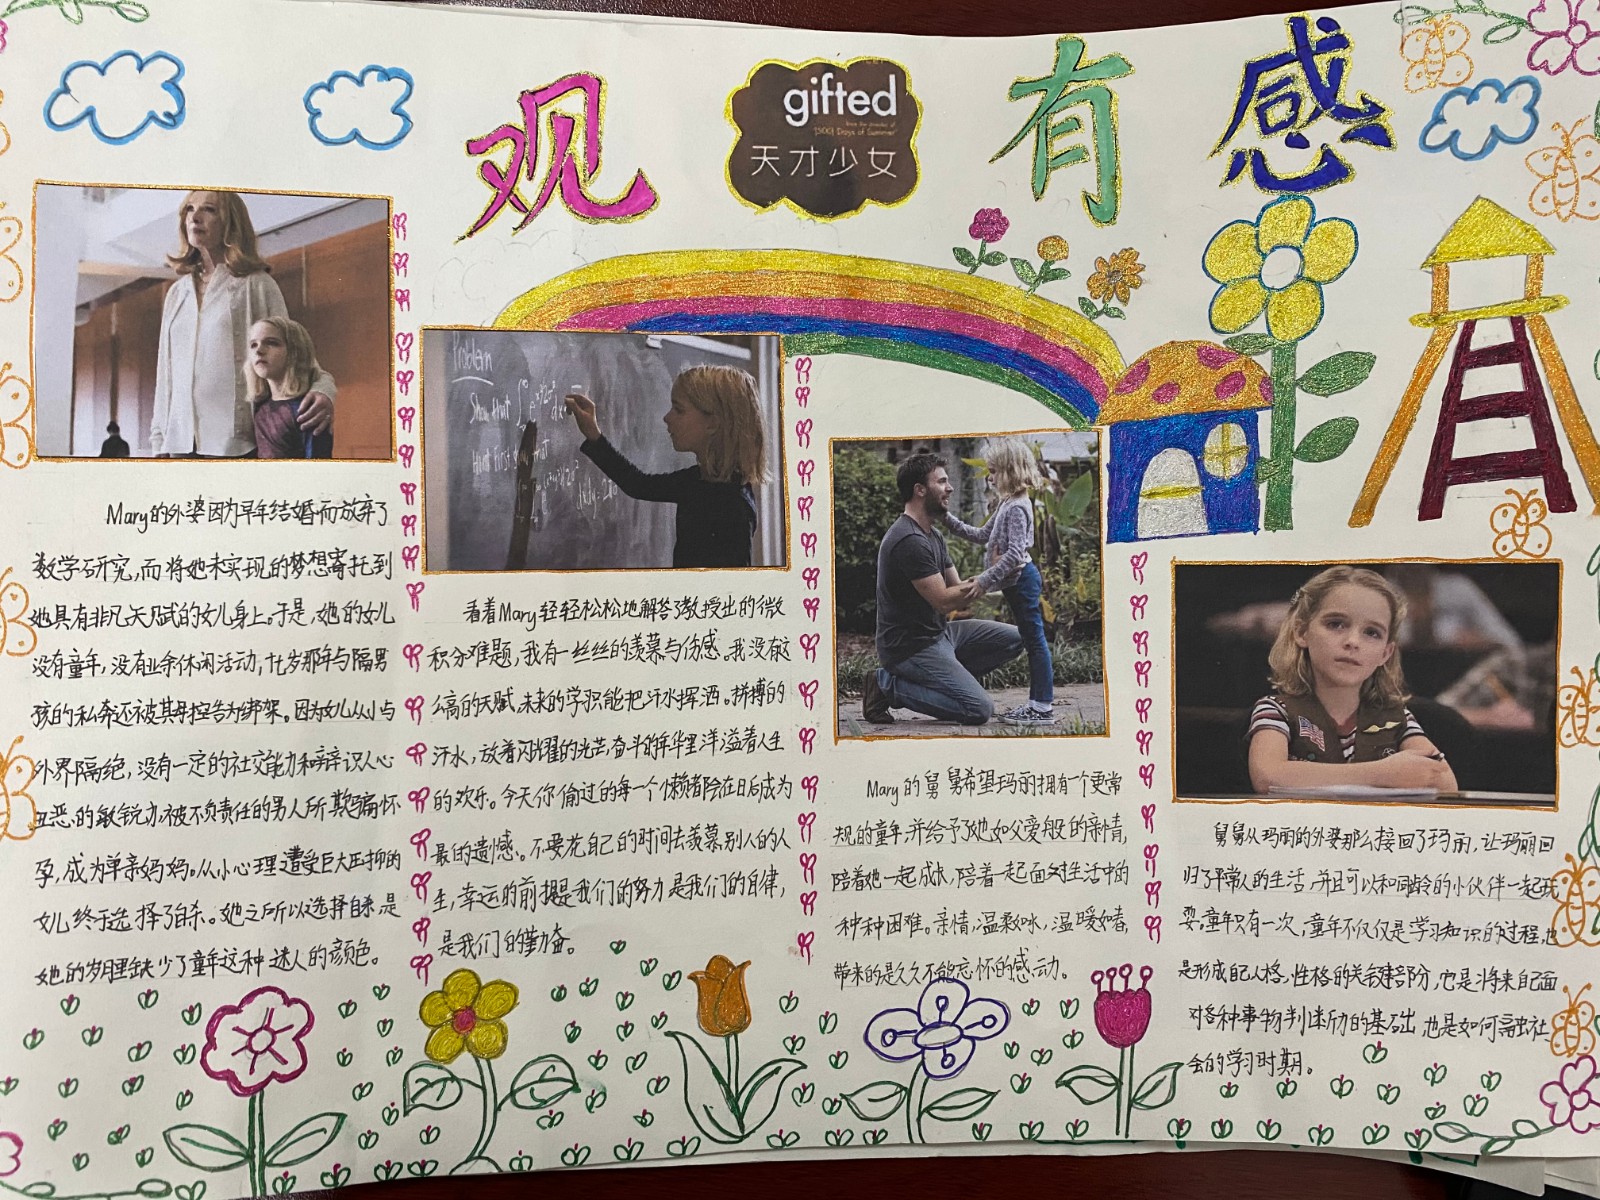 观
gifted
from the director of
(500) Days of Summer
天才少女
有感
Problem
Show that
Mary的外婆因为早年结婚而放弃了
数学研究,而将她未实现的梦想寄托到
她具有非凡天赋的女儿身上。于是,她的女儿
没有童年,没有业余休闲活动,十七岁那年与隔男
孩的私奔还被其母控告为绑架。因为女儿从小与
外界隔绝,没有一定的社交能力和辩识人心
丑恶的敏锐力,被不负责任的男人所欺骗怀
孕,成为单亲妈妈。从小心理遭受巨大压抑的
女儿终于选择了自杀。她之所以选择自杀,是
她的岁月里缺少了童年这种迷人的颜色。
看着Mary轻轻松松地解答了教授出的微
积分难题,我有一丝丝的羡慕与伤感。我没有这
么高的天赋,未来的学识能把汗水挥洒。拼搏的
汗水,放着闪耀的光芒,奋斗的年华里洋溢着人生
的欢乐。今天你偷过的每一个懒都会在日后成为
最的遗憾。不要花自己的时间去羡慕别人的人
生,幸运的前提是我们的努力是我们的自律,
是我们的勤奋。
Mary的舅舅希望玛丽拥有一个更常
规的童年,并给予了她如父爱般的亲情,
陪着她一起成长,陪着一起面对生活中的
种种困难。亲情,温柔如水,温暖如春,
带来的是久久不能忘怀的感动。
舅舅从玛丽的外婆那么接回了玛丽,让玛丽回
归了平常人的生活,并且可以和同龄的小伙伴一起玩
耍。童年只有一次,童年不仅仅是学习知识的过程,也
是形成自己人格,性格的关键部分,它是将来自己面
对各种事物判断力的基础,也是如何融社
会的学习时期。